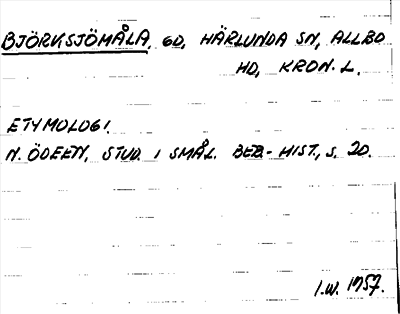 BJÖRKSJÖMÅLA. GD, HÄRLUNDA SN, ALLBO
HD, KRON. L.
ETYMOLOGI.
N. ÖDEEN, STUD. I SMÅL. BEB.-HIST., S. 20.
I.W. 1957.